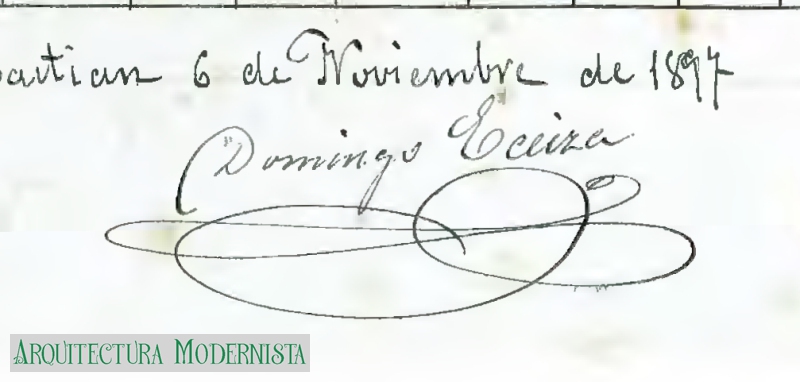 bastian 6 de Noviembre de 1897
Domingo Eceiza
ARQUITECTURA MODERNISTA